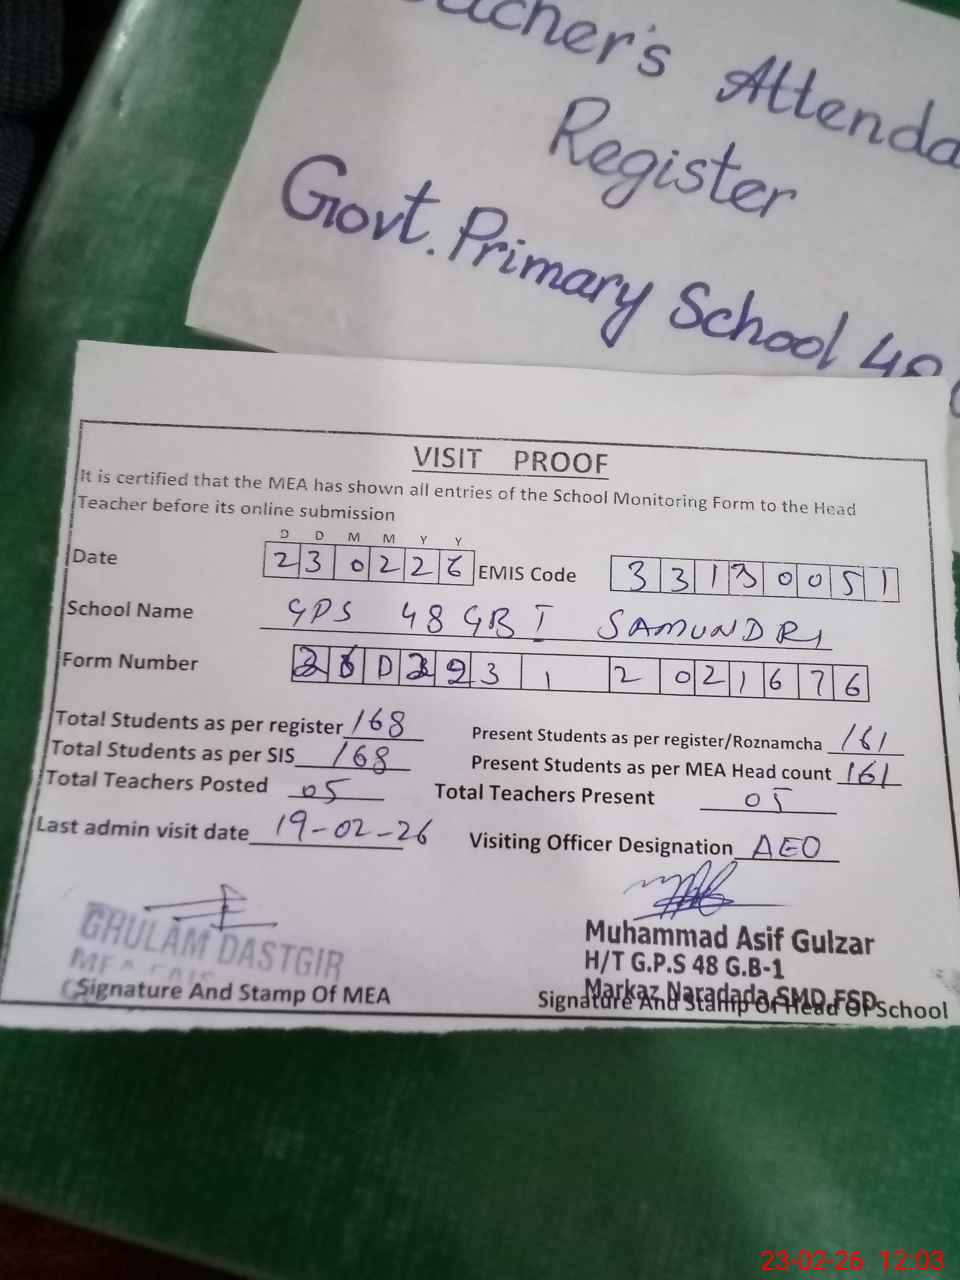 Attenda
Register
Govt. Primary School 48
VISIT PROOF
It is certified that the MEA has shown all entries of the School Monitoring Form to the Head
Teacher before its online submission
D D M M Y Y
Date 2 3 0 2 2 6 EMIS Code 3 3 1 3 0 0 5 1
School Name GPS 48 GB I SAMUNDRI
Form Number D 3 1 2 0 2 1 6 7 6
Total Students as per register 168 Present Students as per register/Roznamcha 161
Total Students as per SIS 168 Present Students as per MEA Head count 161
Total Teachers Posted 05 Total Teachers Present 05
Last admin visit date 19-02-26 Visiting Officer Designation AEO
GHULAM DASTGIR
MEA
Signature And Stamp Of MEA
Muhammad Asif Gulzar
H/T G.P.S 48 G.B-1
Markaz Naradada SMD, FSD
Signature And Stamp Of Head Of School
23-02-26 12:03